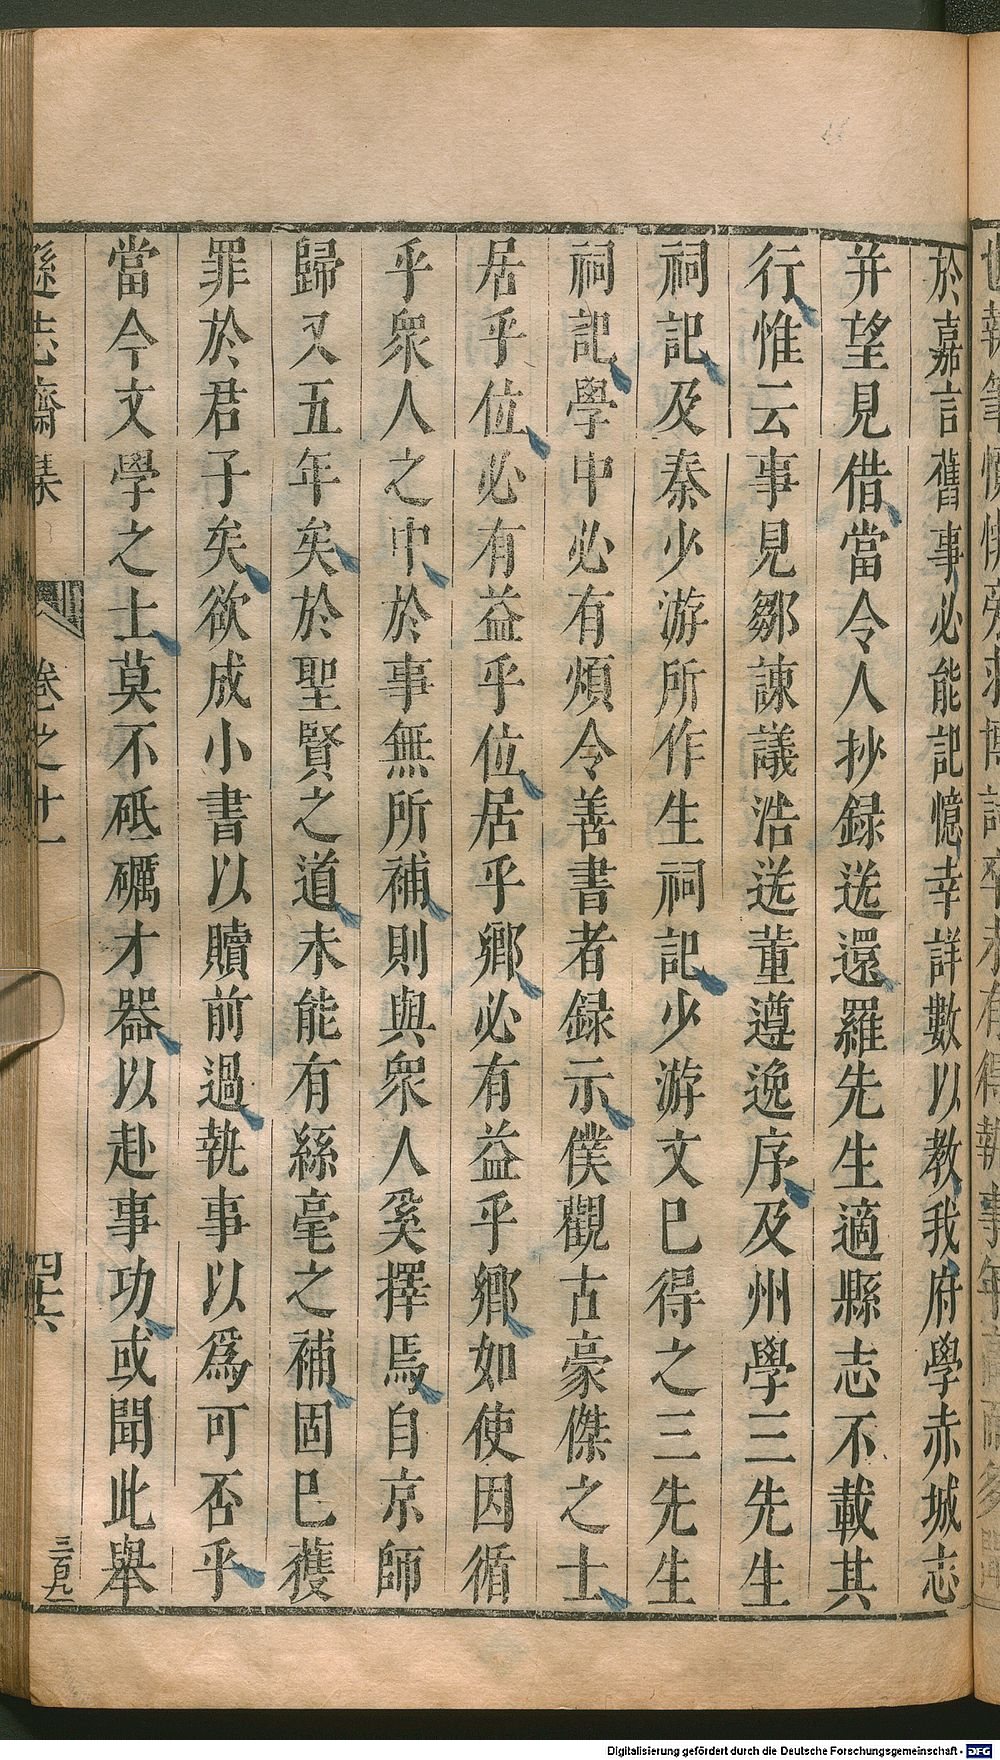 於嘉言舊事必能記憶幸詳數以教我府學赤城志
并望見借當令人抄録送還羅先生適縣志不載其
行惟云事見鄒諫議浩送董遵逸序及州學三先生
祠記及秦少游所作生祠記少游文已得之三先生
祠記學中必有煩令善書者録示僕觀古豪傑之士
居乎位必有益乎位居乎鄉必有益乎鄉如使因循
乎衆人之中於事無所補則與衆人奚擇焉自京師
歸又五年矣於聖賢之道未能有絲毫之補固已獲
罪於君子矣欲成小書以贖前過執事以爲可否乎
當今文學之士莫不砥礪才器以赴事功或聞此舉
遜志齋集 卷之十一 四十六 三百九
Digitalisierung gefördert durch die Deutsche Forschungsgemeinschaft - DFG